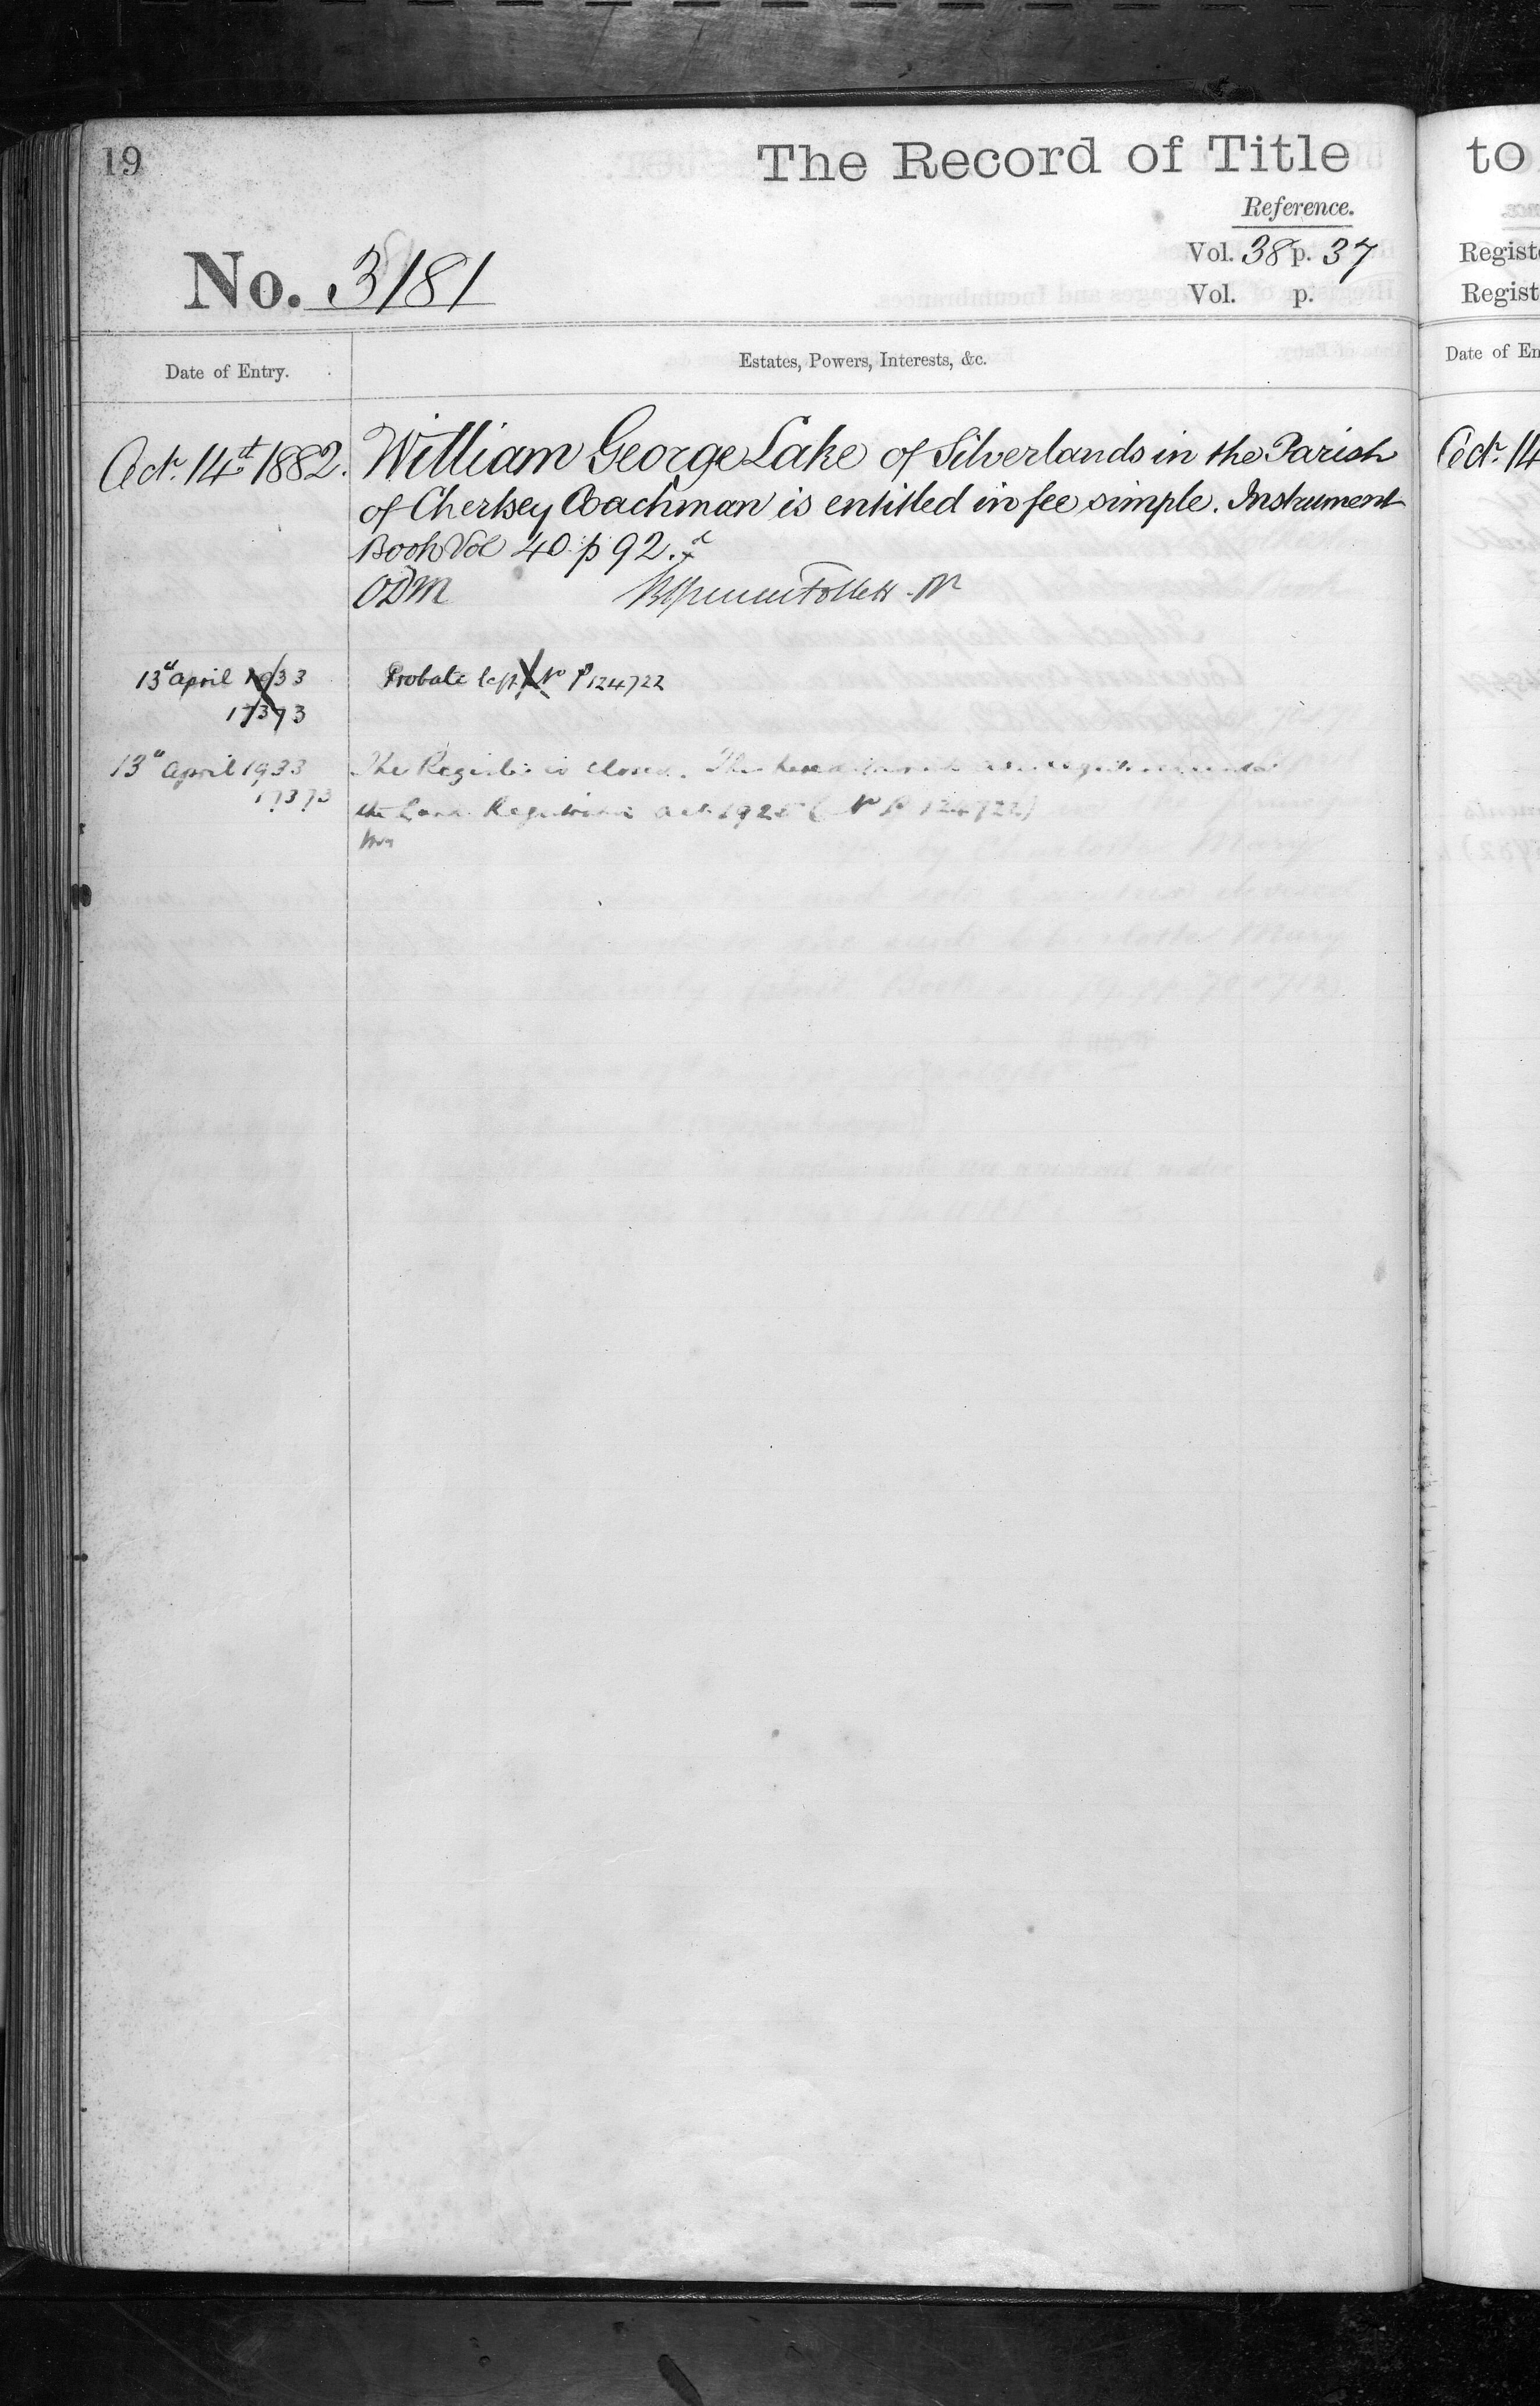 19
The Record of Title
Reference.
No. 3181
Vol. 38 p. 37
Vol. p.
Date of Entry.
Estates, Powers, Interests, &c.
Oct. 14th 1882.
William George Lake of Silverlands in the Parish
of Chertsey Coachman is entitled in fee simple. Instrument
Book Vol 40 p 92.
ODM
13th April 1933
17373
Probate left N P 124722
13th April 1933
17373
The Register is closed. The hereditaments are registered under
the Land Registration Act 1925 (N P 124722)
to
Regist
Regist
Date of En
Oct. 14